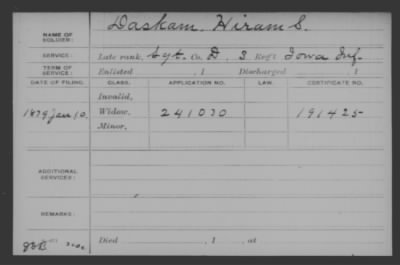 NAME OF SOLDIER: Daskam, Hiram S.
SERVICE: Late rank, Cpt. Co. D, 3 Reg't Iowa Inf.
TERM OF SERVICE: Enlisted , 1 Discharged , 1
DATE OF FILING. CLASS. APPLICATION NO. LAW. CERTIFICATE NO.
Invalid,
1879 Jan 10. Widow, 241030 191425
Minor,
ADDITIONAL SERVICES:
REMARKS:
Died , 1 , at